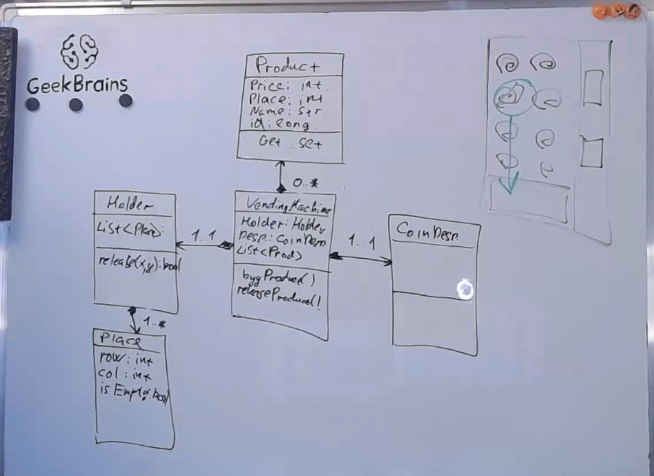 GeekBrains
Product
Price: int
Place: int
Name: Str
id: long
Get Set
0..*
Holder
List<Place>
release(x,y): bool
1..1
VendingMachine
Holder: Holder
Desp: CoinDesp
List<Prod>
buyProduct()
releaseProduct()
1..1
CoinDesp
1..*
Place
row: int
col: int
isEmpty: bool